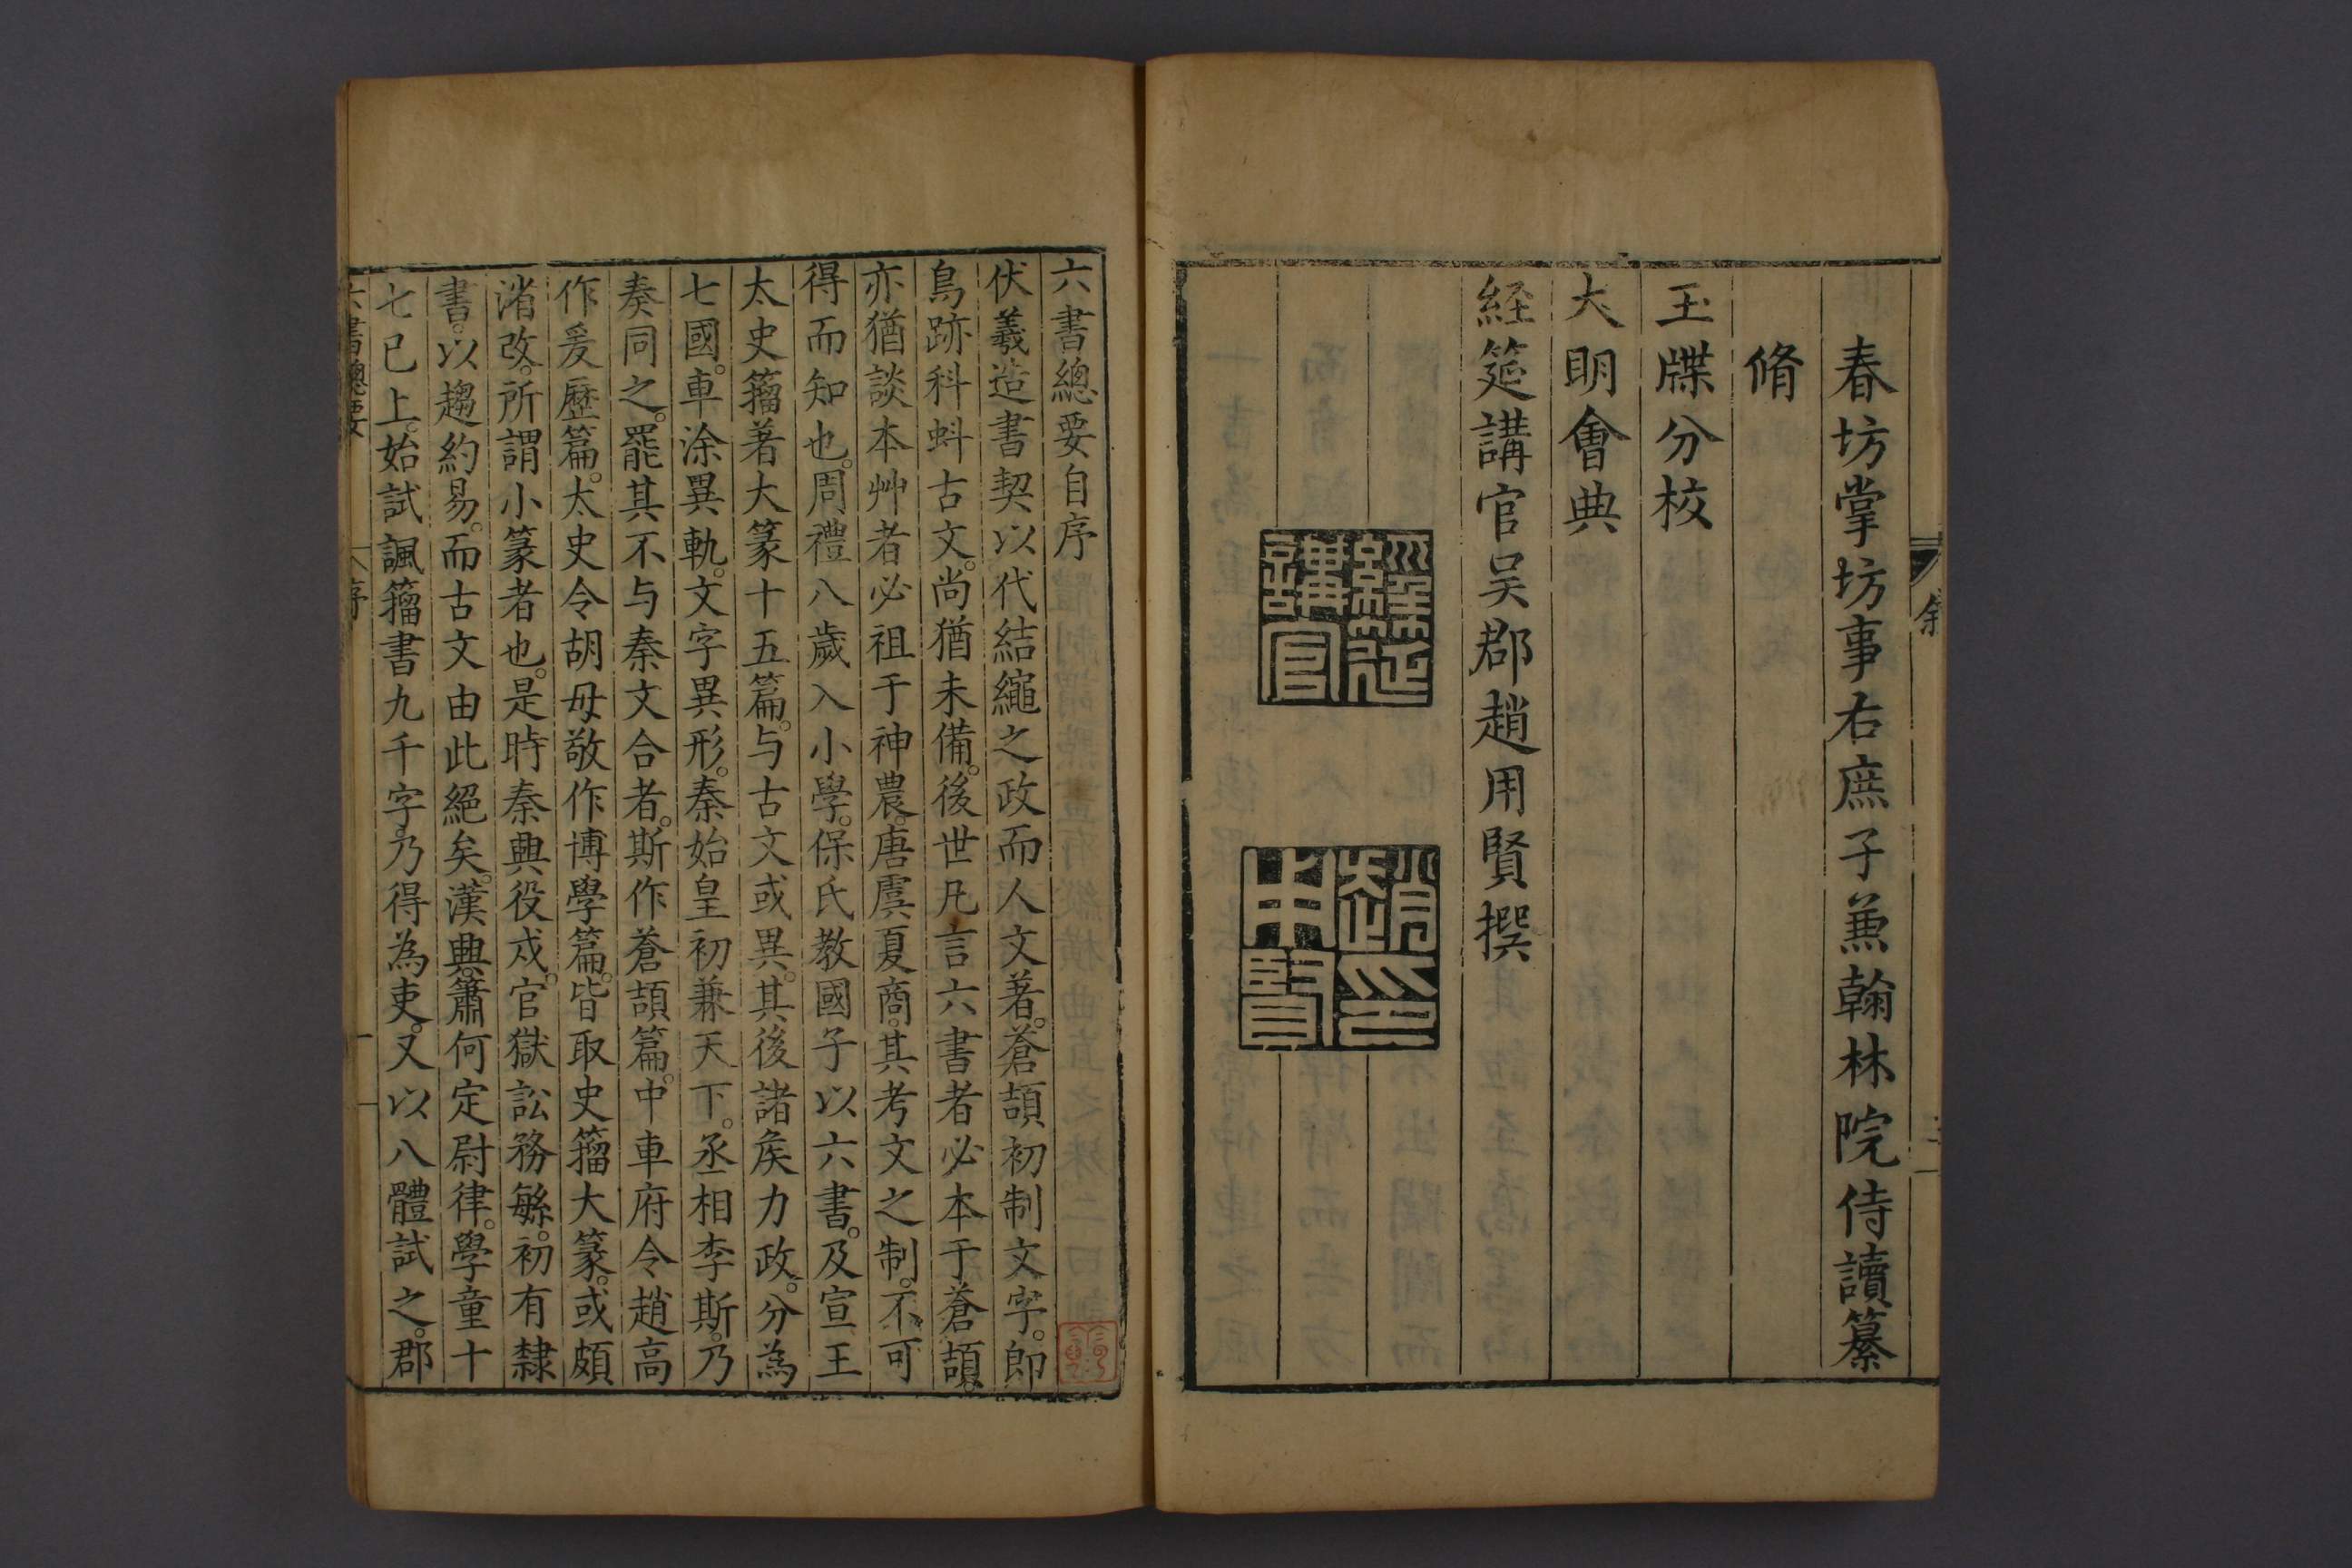 春坊掌坊事右庶子兼翰林院侍讀纂
脩
玉牒分校
大明會典
経筵講官吴郡趙用賢撰
經筵講官
趙用賢印
叙
六書總要自序
伏羲造書契以代結繩之政而人文著。蒼頡初制文字。即
鳥跡科蚪古文。尚猶未備。後世凡言六書者必本于蒼頡。
亦猶談本艸者必祖于神農。唐虞夏商。其考文之制。不可
得而知也。周禮八歲入小學。保氏教國子以六書。及宣王
太史籀著大篆十五篇。与古文或異。其後諸矦力政。分為
七國。車涂異軌。文字異形。秦始皇初兼天下。丞相李斯。乃
奏同之。罷其不与秦文合者。斯作蒼頡篇。中車府令趙高
作爰歷篇。太史令胡母敬作博學篇。皆取史籀大篆。或頗
渻改。所謂小篆者也。是時秦興役戍。官獄訟務緐。初有隸
書。以趨約易。而古文由此絕矣。漢興。蕭何定尉律。學童十
七已上。始試諷籀書九千字。乃得為吏。又以八體試之。郡
六書總要
序
一